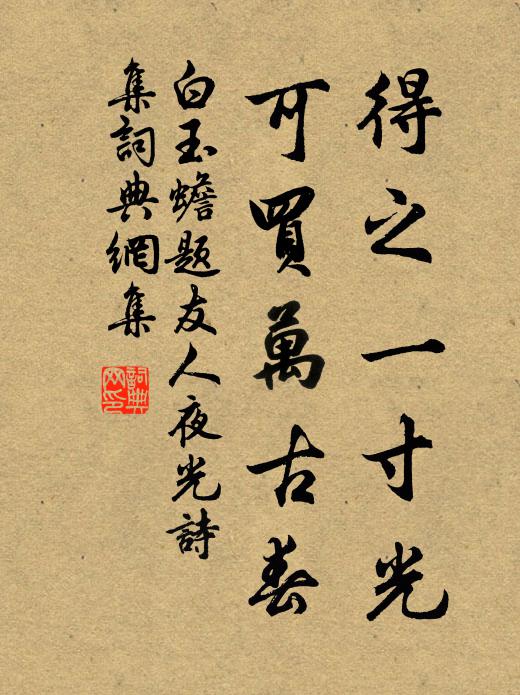 得之一寸光
可買萬古春
白玉蟾題友人夜光詩
集詞典網集
詞典网印